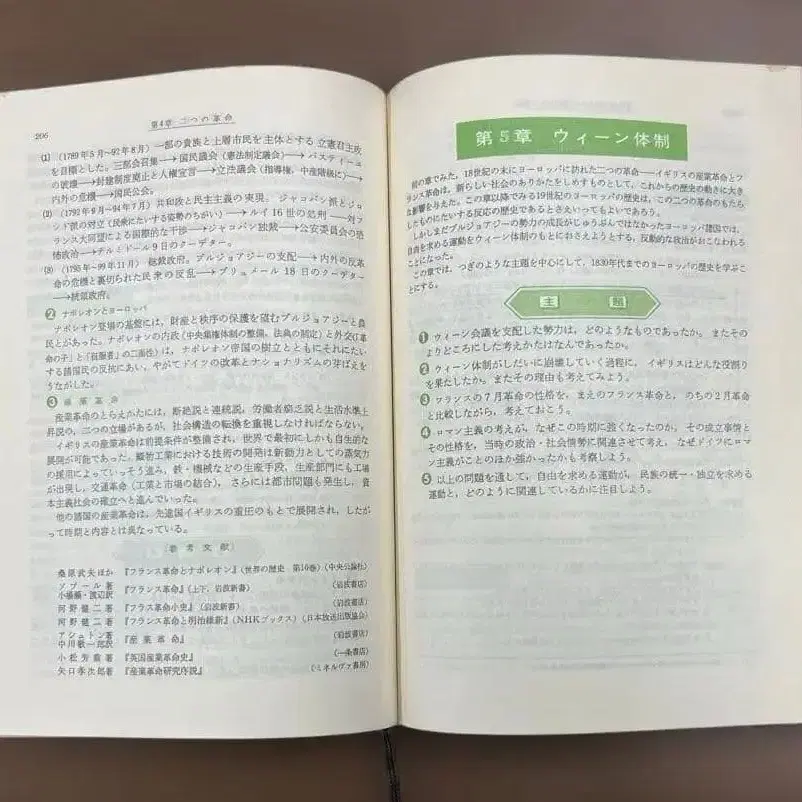 206
第4章 二つの革命
(1) (1789年5月~92年8月) 一部の貴族と上層市民を主体とする立憲君主政
を目標とした。三部会召集─→国民議会(憲法制定議会)─→バスティーユ
の破壊─→封建制度廃止と人権宣言─→立法議会(指導権,中産階級に)─→
内外の危機→国民公会。
(2) (1792年9月~94年7月) 共和政と民主主義の実現。ジャコバン派とジロ
ンド派の対立(民衆にたいする姿勢のちがい)─→ルイ16世の処刑─→対フ
ランス大同盟による国際的な干渉→ジャコバン独裁─→公安委員会の恐
怖政治─→テルミドール9日のクーデター。
(3) (1795年~99年11月) 総裁政府。ブルジョアジーの支配─→内外の反革
命の危機と裏切られた民衆の反乱─→ブリュメール18日のクーデター
─→統領政府。
❷ ナポレオンとヨーロッパ
ナポレオン登場の基盤には,財産と秩序の保護を望むブルジョアジーと農
民とがあった。ナポレオンの内政(中央集権体制の整備,法典の制定)と外交(「革
命の子」と「征服者」の二面性)は,ナポレオン帝国の樹立とともにそれにたい
する諸国民の反抗にあい,やがてドイツの改革とナショナリズムの芽ばえを
うながした。
❸ 産業革命
産業革命のとらえかたには,断絶説と連続説,労働者窮乏説と生活水準上
昇説の,二つの立場があるが,社会構造の転換を重視しなければならない。
イギリスの産業革命は前提条件が整備され,世界で最初にしかも自生的な
展開が可能であった。綿物工業における技術の開発は新動力としての蒸気力
の採用によっていっそう進み,鉄・機械などの生産手段,生産部門にも工場
が出現し,交通革命(工業と市場の結合),さらには都市問題も発生し,資
本主義社会の確立へと進んでいった。
他の諸国の産業革命は,先進国イギリスの重圧のもとで展開され,したが
って時期と内容とは異なっている。
〔参考文献〕
桑原武夫ほか 『フランス革命とナポレオン』(世界の歴史 第10巻)(中央公論社)
ソブール著
小場瀬・渡辺訳 『フランス革命』(上下,岩波新書) (岩波書店)
河野健二著 『フランス革命小史』(岩波新書) (岩波書店)
河野健二著 『フランス革命と明治維新』(NHKブックス)(日本放送出版協会)
アシュトン著
中川敬一郎訳 『産業革命』 (岩波書店)
小松芳喬著 『英国産業革命史』 (一条書店)
矢口孝次郎著 『産業革命研究序説』 (ミネルヴァ書房)
第5章 ウィーン体制
前の章でみた,18世紀の末にヨーロッパに訪れた二つの革命──イギリスの産業革命とフ
ランス革命は,新らしい社会のありかたをしめすものとして,これからの歴史の動きに大き
な影響を与えた。この章以降でみる19世紀のヨーロッパの歴史は,この二つの革命のもたら
したものにたいする反応の歴史であるとさえいってもよいであろう。
しかしまだブルジョアジーの勢力の成長がじゅうぶんではなかったヨーロッパ諸国では,
自由を求める運動をウィーン体制のもとにおさえようとする,反動的な政治がおこなわれる
ことになった。
この章では,つぎのような主題を中心にして,1830年代までのヨーロッパの歴史を学ぶこ
とにする。
主題
❶ ウィーン会議を支配した勢力は,どのようなものであったか。またその
よりどころにした考えかたはなんであったか。
❷ ウィーン体制がしだいに崩壊していく過程に,イギリスはどんな役割り
を果たしたか。またその理由も考えてみよう。
❸ フランスの7月革命の性格を,まえのフランス革命と,のちの2月革命
と比較しながら,考えておこう。
❹ ロマン主義の考えが,なぜこの時期に強くなったのか,その成立事情と
その性格を,当時の政治・社会情勢に関連させて考え,なぜドイツにロマ
ン主義がことのほか強かったかも考察しよう。
❺ 以上の問題を通して,自由を求める運動が,民族の統一・独立を求める
運動と,どのように関連しているかに注目しよう。